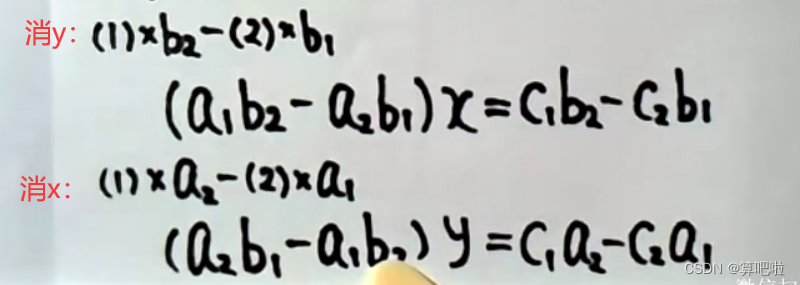 消y: (1)×b₂-(2)×b₁
(a₁b₂-a₂b₁)x=c₁b₂-c₂b₁
消x: (1)×a₂-(2)×a₁
(a₂b₁-a₁b₂)y=c₁a₂-c₂a₁
CSDN @算吧啦